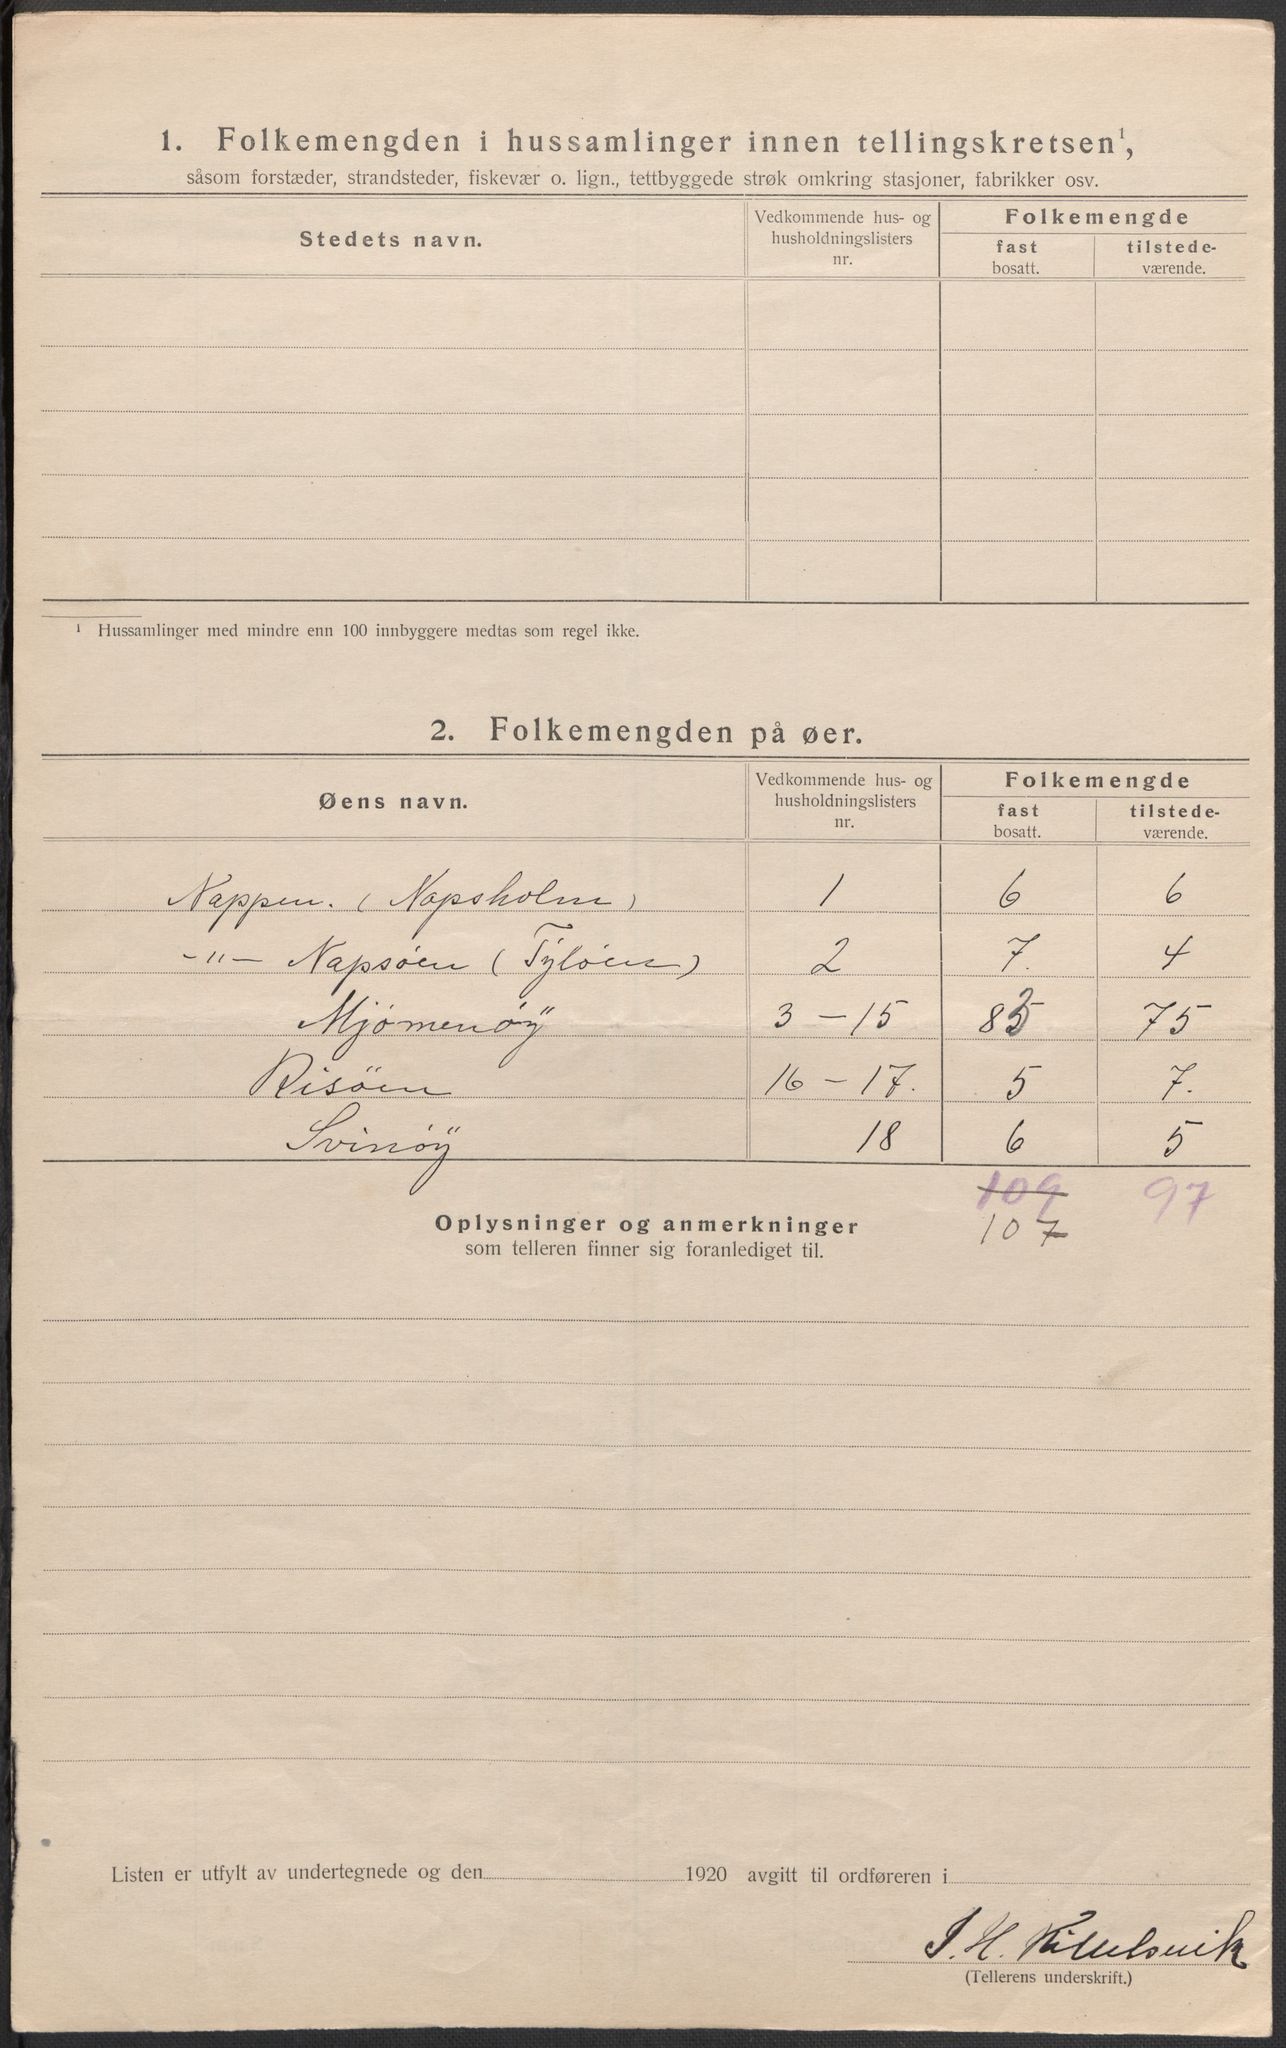 1. Folkemengden i hussamlinger innen tellingskretsen¹,
såsom forstæder, strandsteder, fiskevær o. lign., tettbyggede strøk omkring stasjoner, fabrikker osv.
Stedets navn. Vedkommende hus- og husholdningslisters nr. Folkemengde
fast bosatt. tilstede-værende.
¹ Hussamlinger med mindre enn 100 innbyggere medtas som regel ikke.
2. Folkemengden på øer.
Øens navn. Vedkommende hus- og husholdningslisters nr. Folkemengde
fast bosatt. tilstede-værende.
Nappen. (Napsholm) 1 6 6
-"- Napsøen (Tyløen) 2 7. 4
Mjömenöy 3 - 15 83 75
Risöen 16 - 17. 5 7.
Svinöy 18 6 5
109 97
107
Oplysninger og anmerkninger
som telleren finner sig foranlediget til.
Listen er utfylt av undertegnede og den 1920 avgitt til ordføreren i
(Tellerens underskrift.)